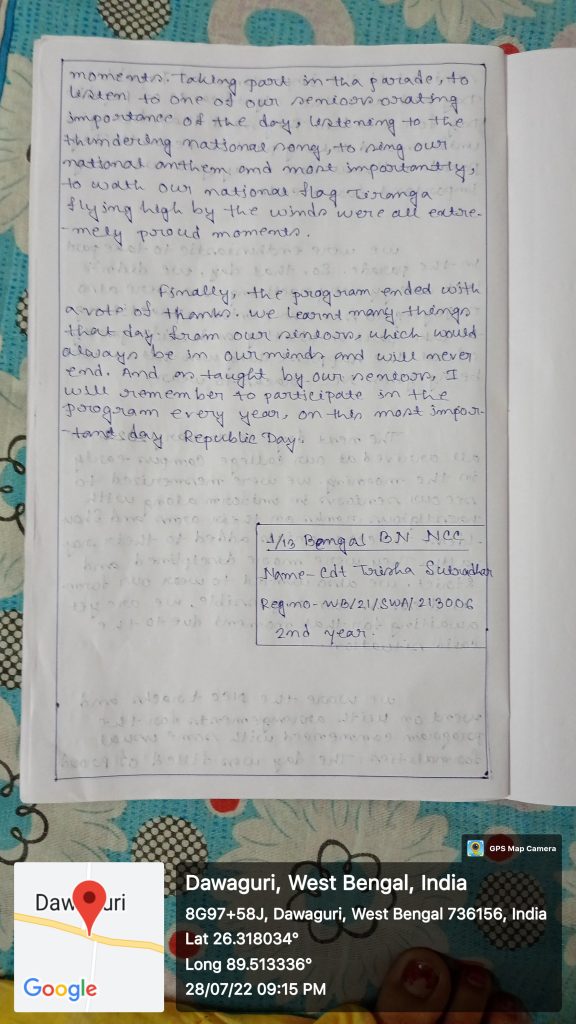 moments. Taking part in tha parade, to
listen to one of our seniors orating
importance of the day, listening to the
thundering national song, to sing our
national anthem and most importantly,
to wath our national flag Tiranga
flying high by the winds were all extre-
-mely proud moments.
Finally, the program ended with
a vote of thanks. we learnt many things
that day from our seniors, which would
always be in our minds and will never
end. And as taught by our seniors, I
will remember to participate in the
program every year, on this most impor-
-tant day Republic Day.
1/13 Bengal BN NCC
Name- Cdt Trisha Sutradhar
Regmo- WB/21/SWA/213006
2nd year.
GPS Map Camera
Dawaguri
Google
Dawaguri, West Bengal, India
8G97+58J, Dawaguri, West Bengal 736156, India
Lat 26.318034°
Long 89.513336°
28/07/22 09:15 PM